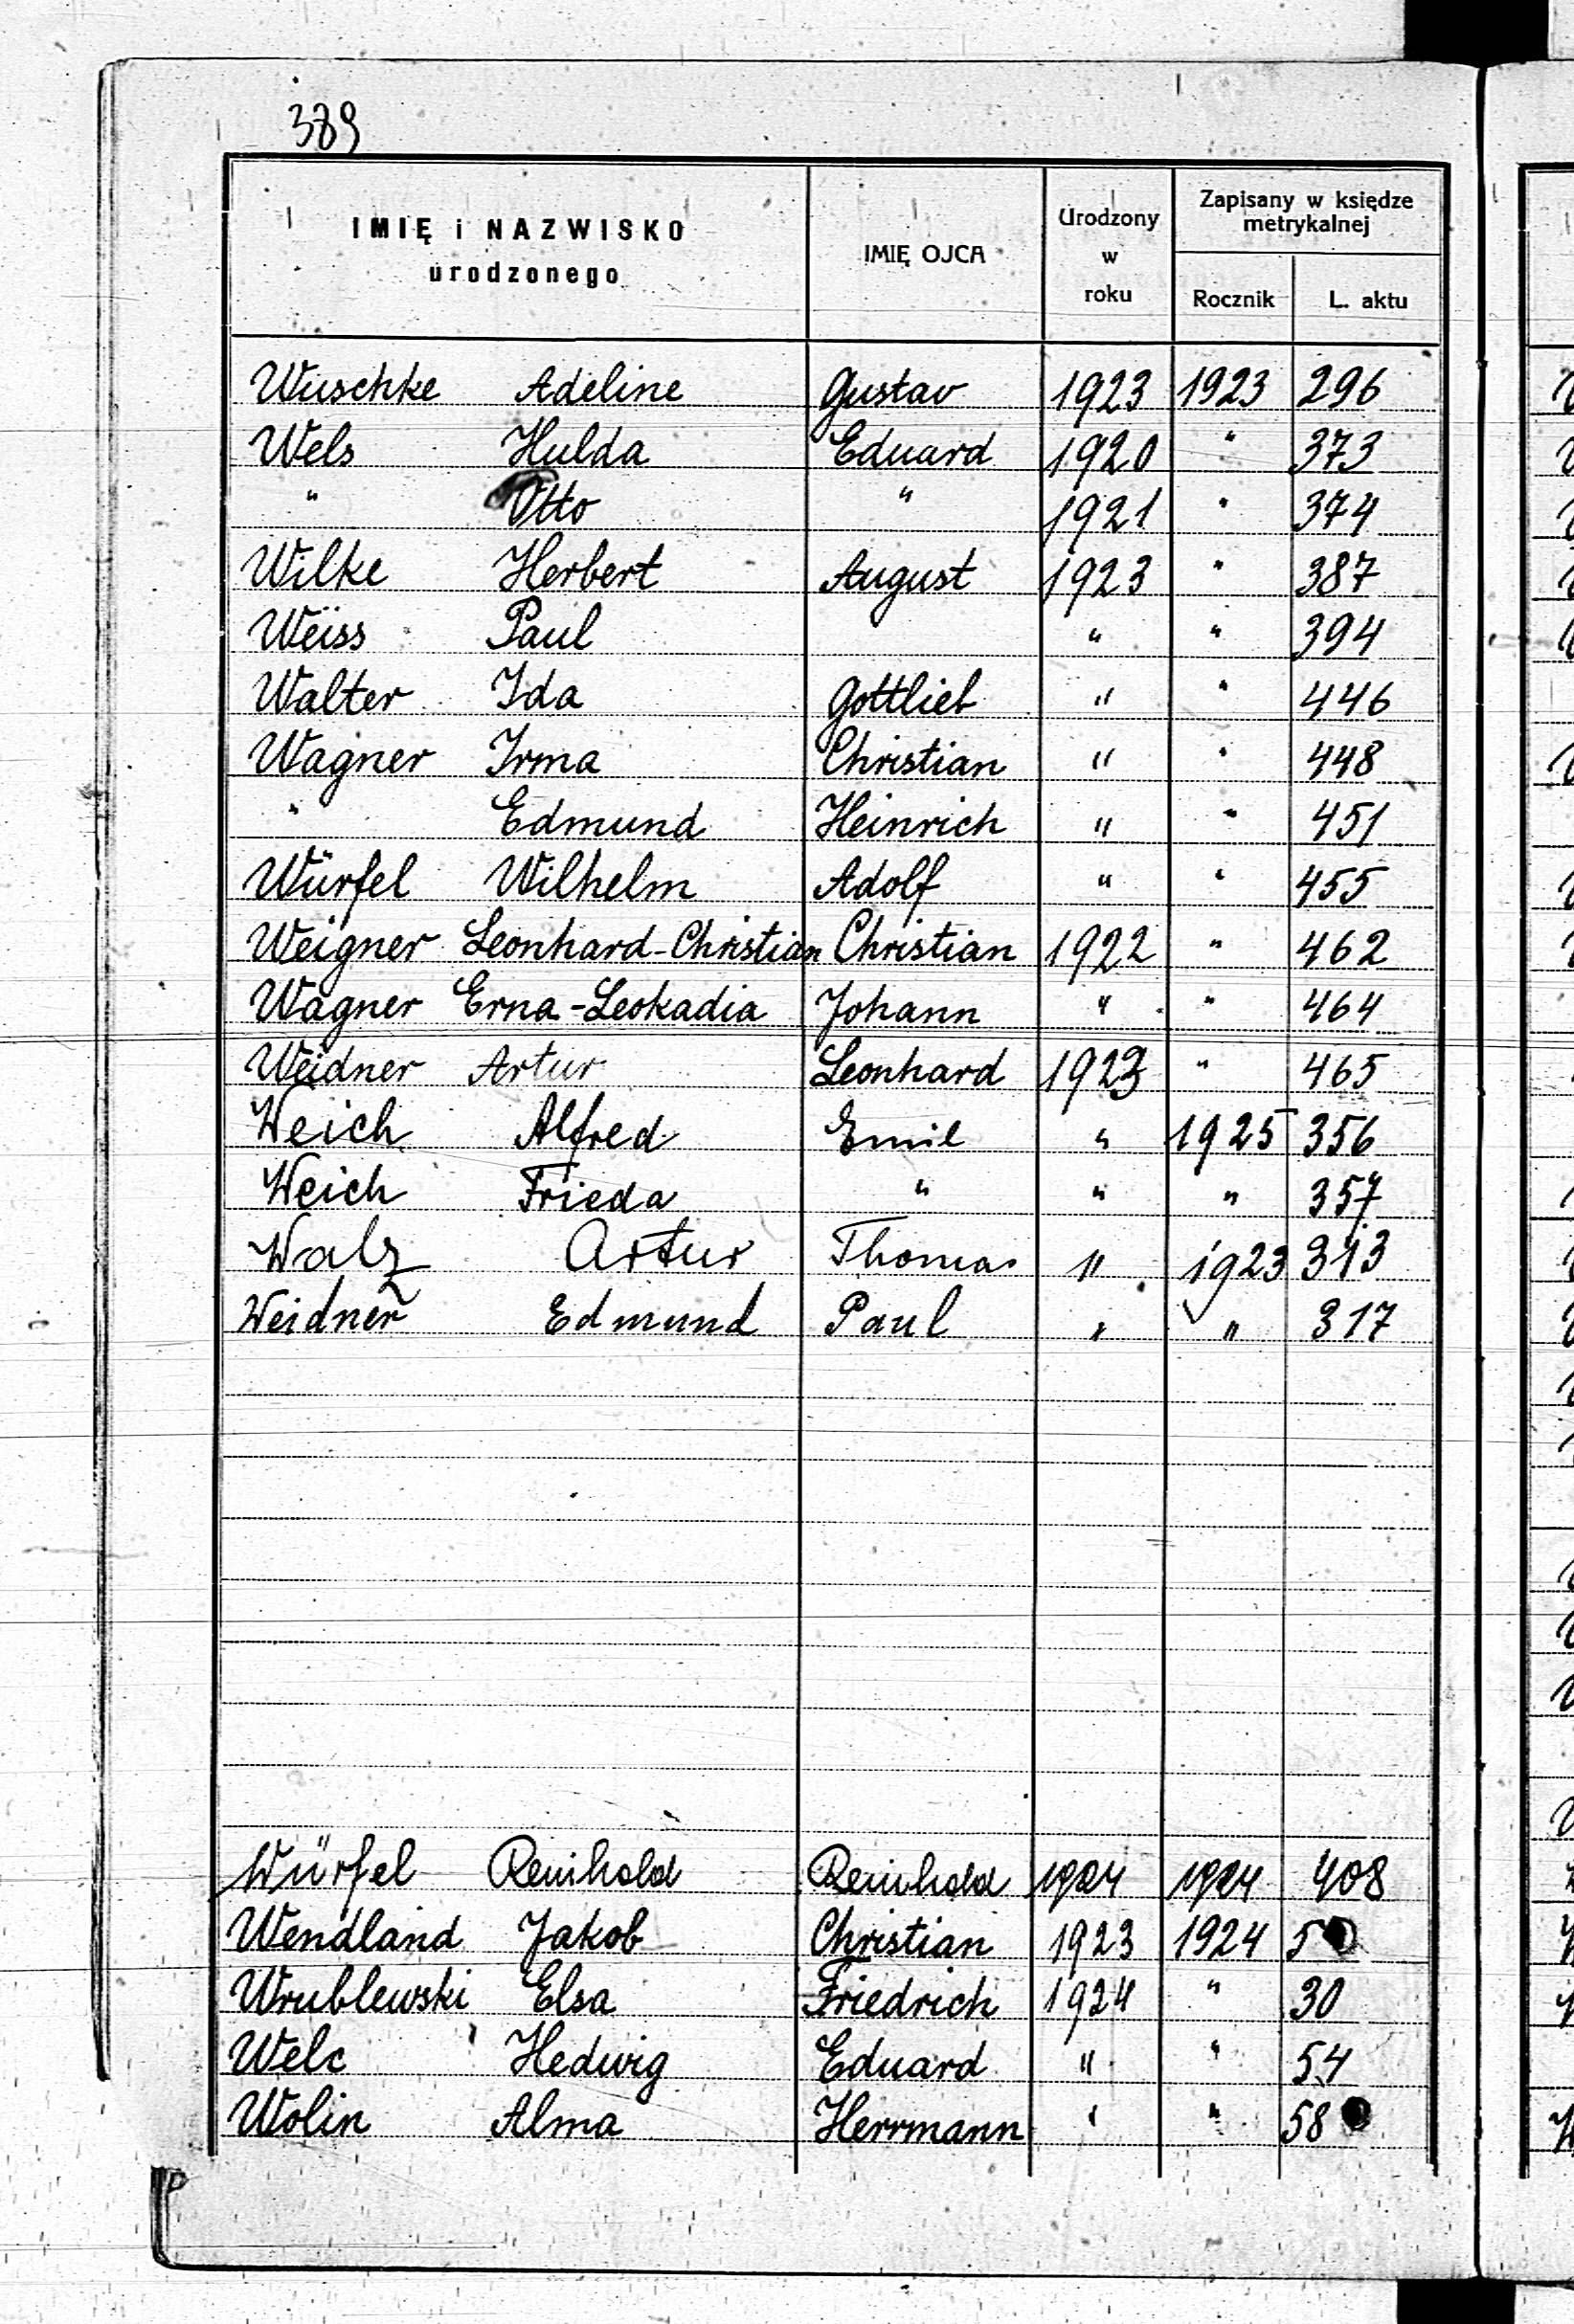 389
IMIĘ i NAZWISKO urodzonego IMIĘ OJCA Urodzony w roku Zapisany w księdze metrykalnej
Rocznik L. aktu
Wuschke Adeline Gustav 1923 1923 296
Wels Hulda Eduard 1920 " 373
" Otto " 1921 " 374
Wilke Herbert August 1923 " 387
Weiss Paul " " 394
Walter Ida Gottlieb " " 446
Wagner Irma Christian " " 448
" Edmund Heinrich " " 451
Würfel Wilhelm Adolf " " 455
Weigner Leonhard-Christian Christian 1922 " 462
Wagner Erna-Leokadia Johann " " 464
Weidner Artur Leonhard 1923 " 465
Weich Alfred Emil " 1925 356
Weich Frieda " " " 357
Walz Artur Thomas " 1923 313
Weidner Edmund Paul " " 317
Würfel Reinhold Reinhold 1924 1924 408
Wendland Jakob Christian 1923 1924 5
Wrublewski Elsa Friedrich 1924 " 30
Welc Hedwig Eduard " " 54
Wolin Alma Herrmann " " 58